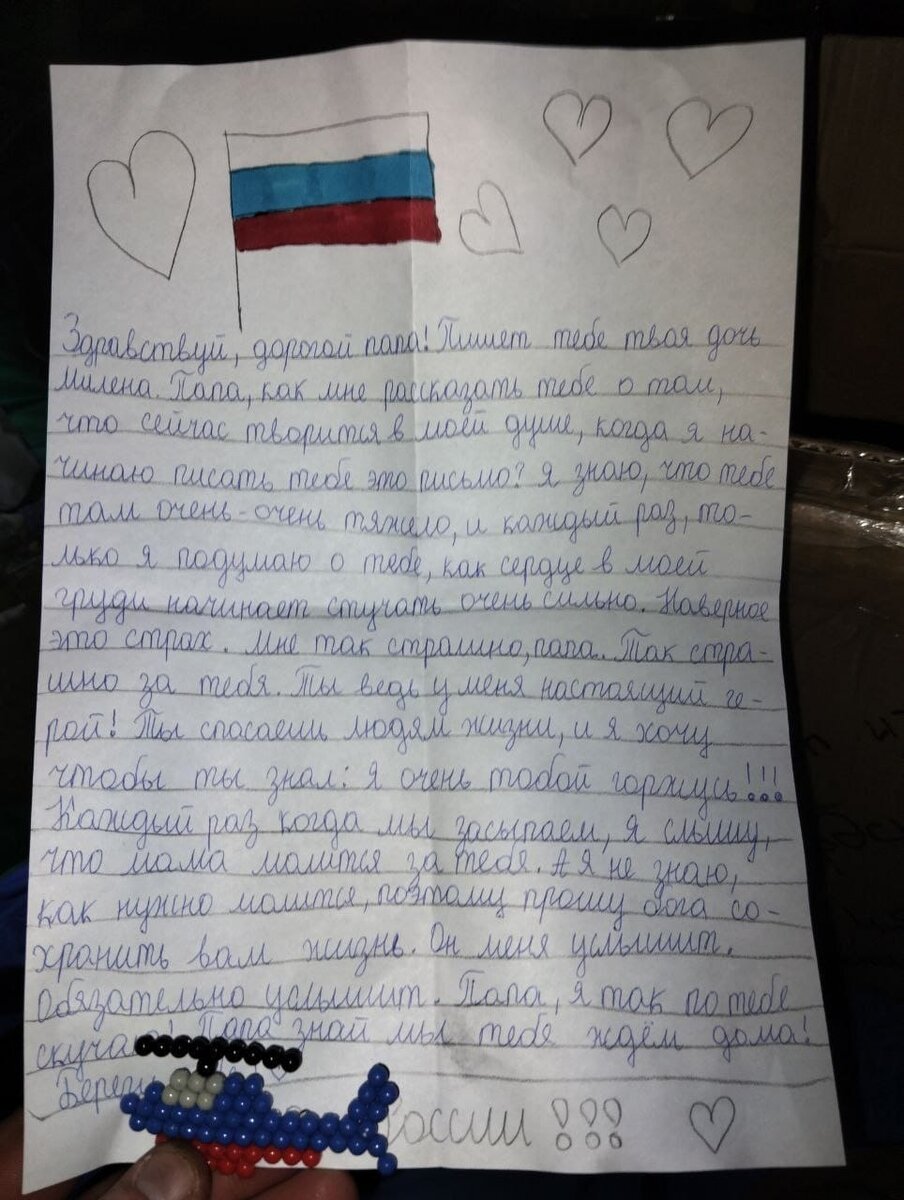 Здравствуй, дорогой папа! Пишет тебе твоя дочь
Милена. Папа, как мне рассказать тебе о том,
что сейчас творится в моей душе, когда я на-
чинаю писать тебе это письмо? Я знаю, что тебе
там очень-очень тяжело, и каждый раз, то-
лько я подумаю о тебе, как сердце в моей
груди начинает стучать очень сильно. Наверное
это страх. Мне так страшно, папа. Так стра-
шно за тебя. Ты ведь у меня настоящий ге-
рой! Ты спасаешь людям жизни, и я хочу
чтобы ты знал: Я очень тобой горжусь!!!
Каждый раз когда мы засыпаем, я слышу,
что мама молится за тебя. А я не знаю,
как нужно молится, поэтому прошу бога со-
хранить вам жизнь. Он меня услышит.
Обязательно услышит. Папа, я так по тебе
скучаю! Папа знай мы тебя ждём дома!
России!!!